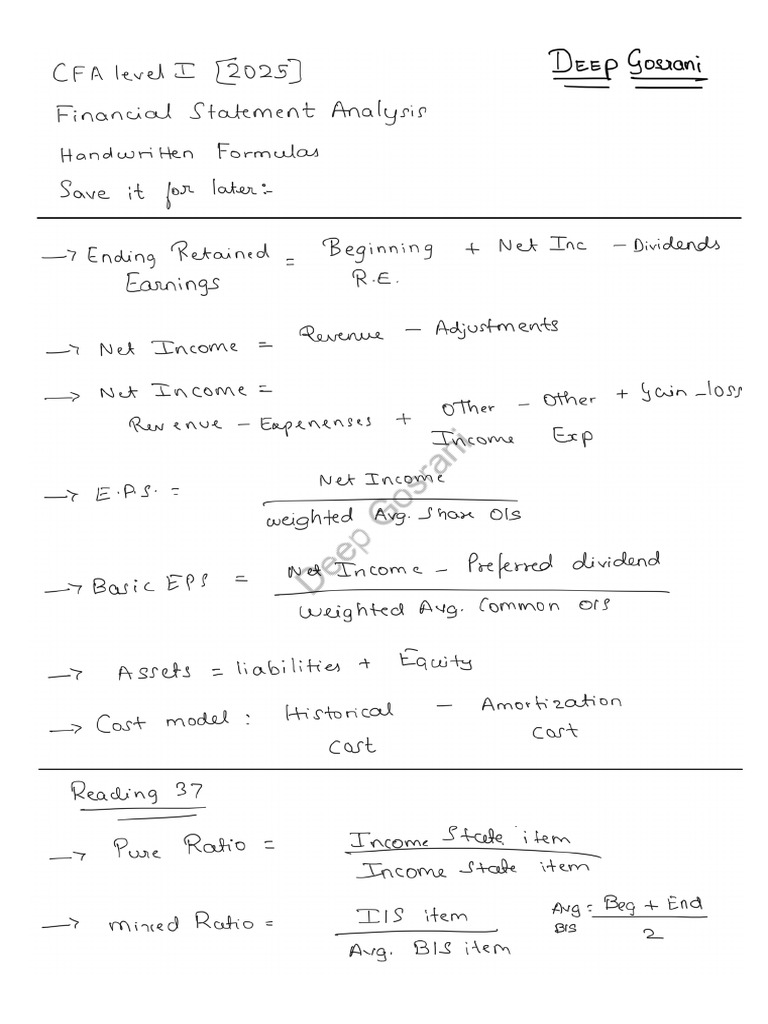 CFA level I [2025]
DEEP Gosrani
Financial Statement Analysis
Handwritten Formulas
Save it for later:-
→ Ending Retained Earnings = Beginning R.E. + Net Inc - Dividends
→ Net Income = Revenue - Adjustments
→ Net Income =
Revenue - Expenenses + Other Income - Other Exp + gain - loss
→ E.P.S. = Net Income
weighted Avg. Share O/S
→ Basic EPS = Net Income - Preferred dividend
Weighted Avg. Common O/S
→ Assets = liabilities + Equity
→ Cost model : Historical cost - Amortization cost
Reading 37
→ Pure Ratio = Income State item
Income State item
→ Mixed Ratio = I/S item
Avg. B/S item
Avg B/S = Beg + End
2
Deep Gosrani